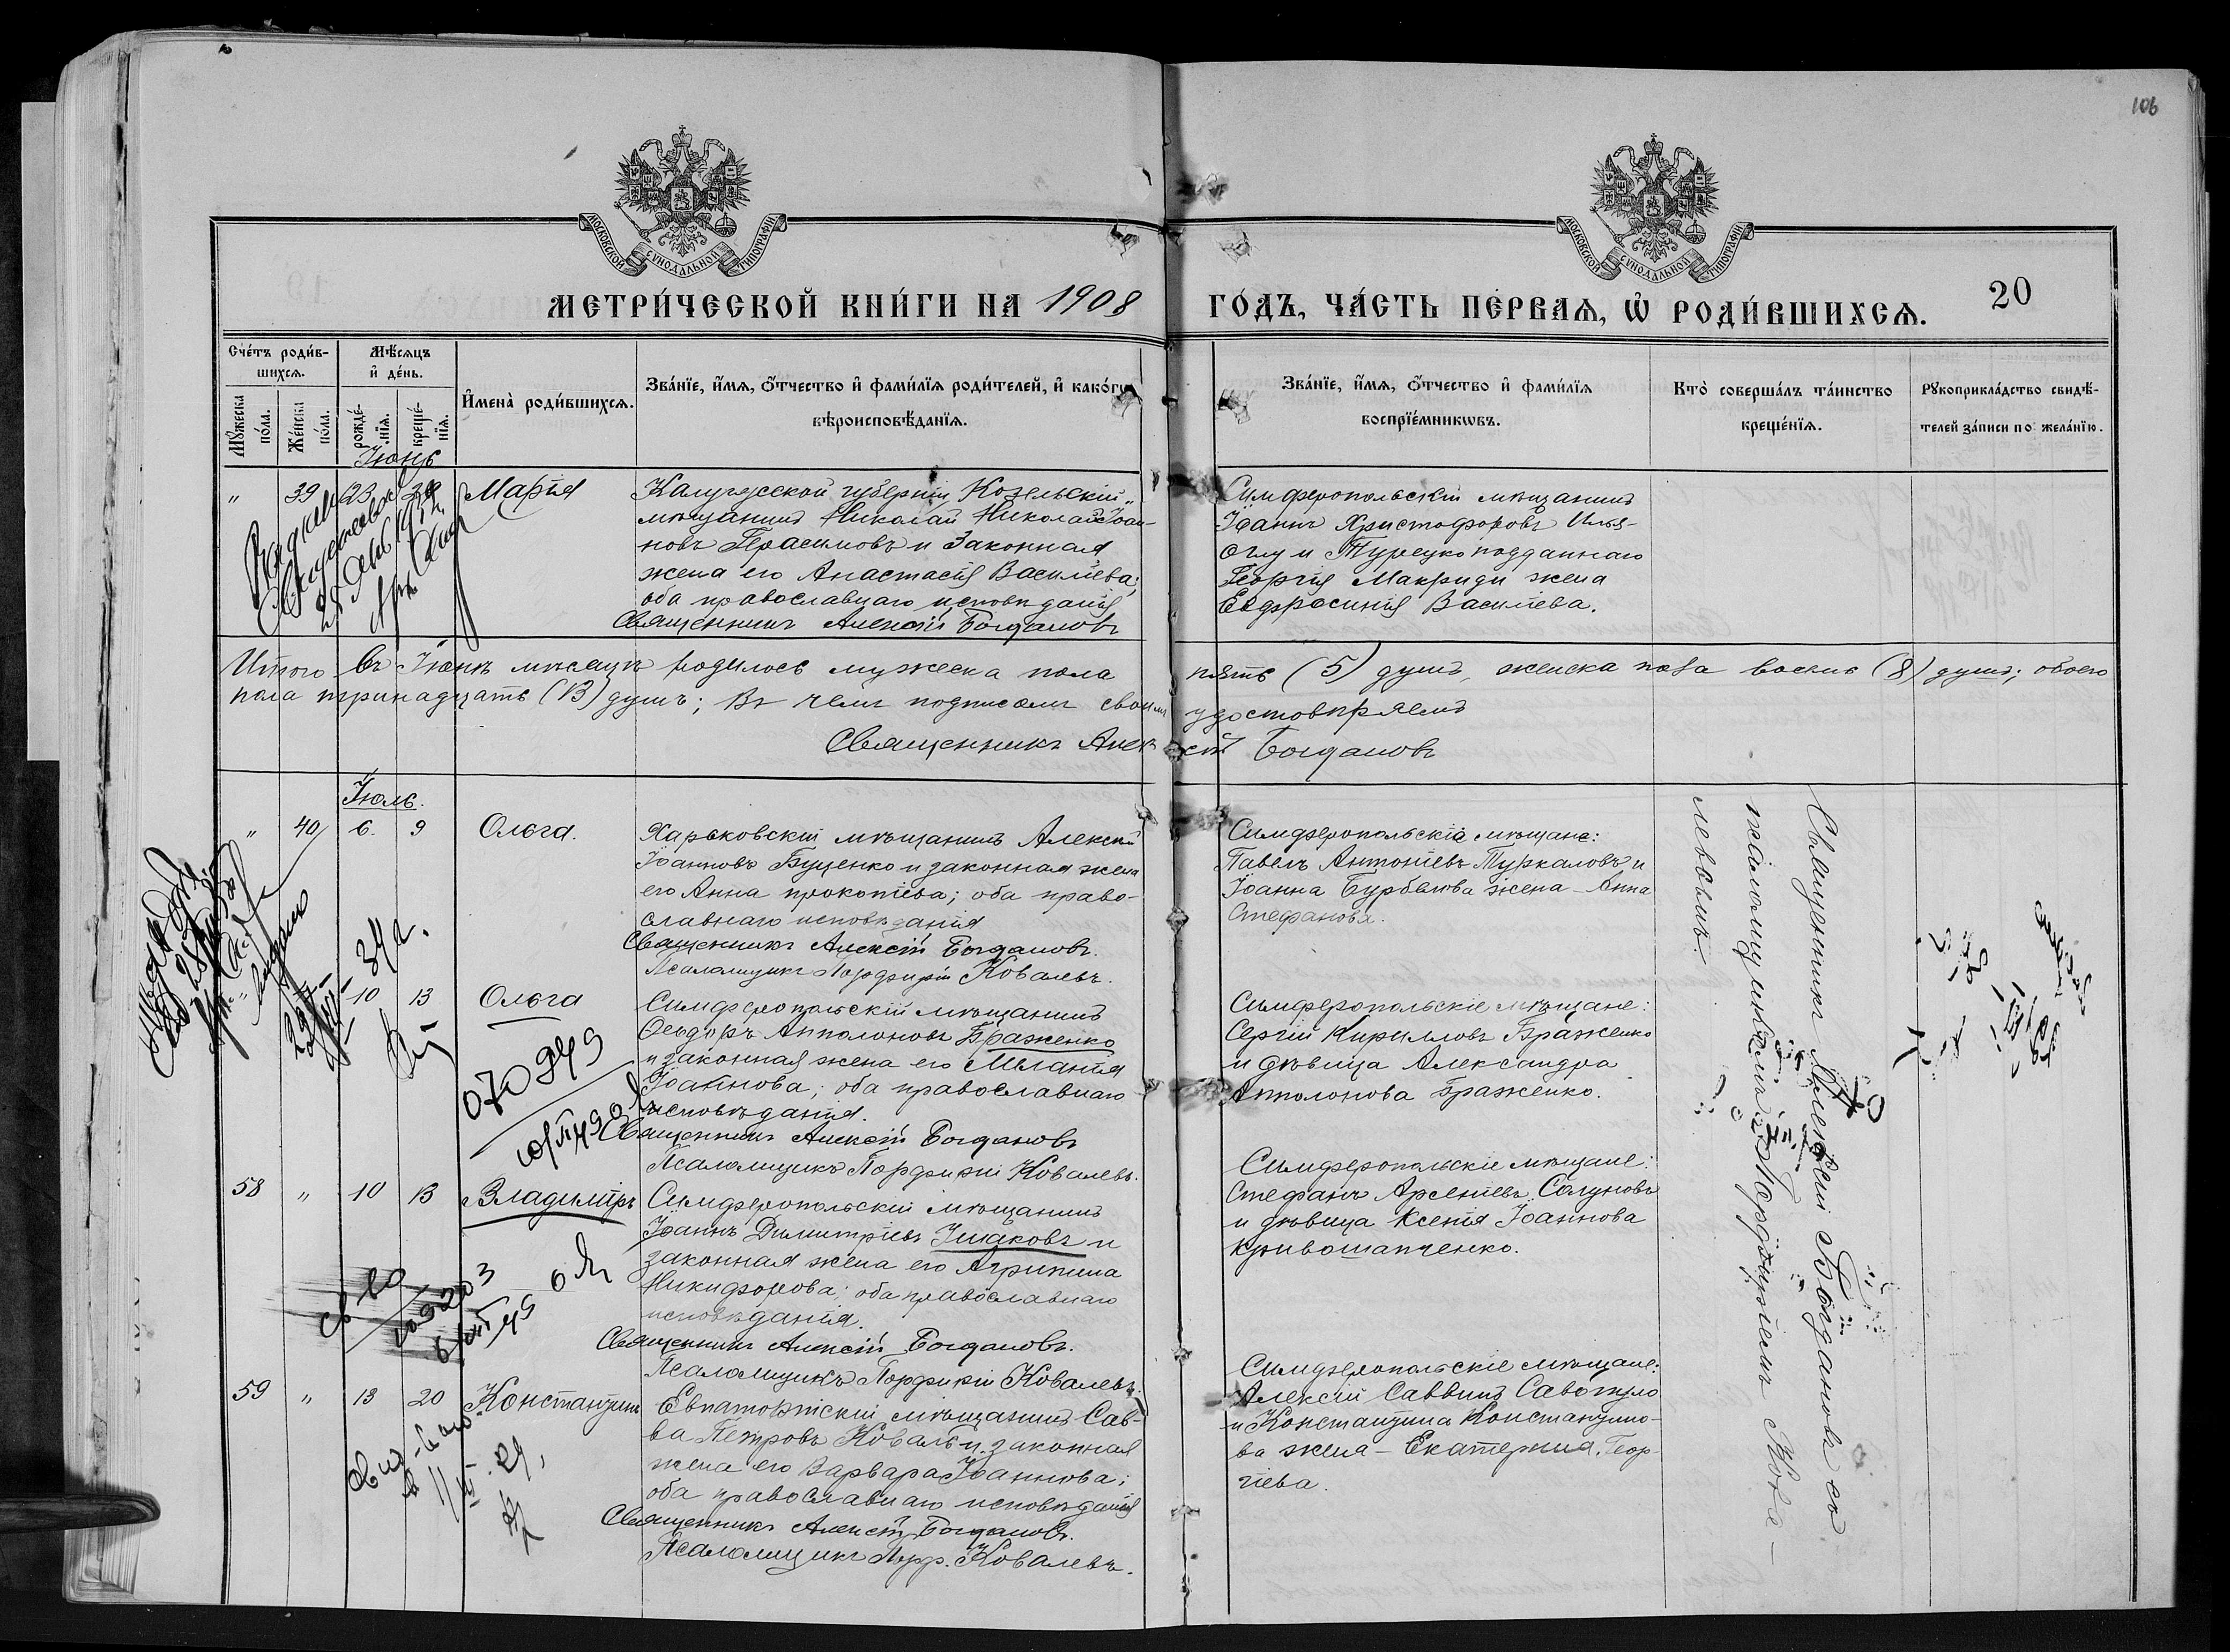 106
МОСКОВСКОЙ СѴНОДАЛЬНОЙ ТИПОГРАФІИ
МОСКОВСКОЙ СѴНОДАЛЬНОЙ ТИПОГРАФІИ
МЕТРИ́ЧЕСКОЙ КНИ́ГИ НА 1908 ГО́ДЪ, ЧА́СТЬ ПЕ́РВАѦ, Ѡ҆ РОДИ́ВШИХСѦ.
20
Сче́тъ роди́в-
шихсѧ.
Мѣ́сѧцъ
и҆ де́нь.
Мꙋ́жеска по́ла.
Же́нска по́ла.
рожде́-
нїѧ.
креще́-
нїѧ.
И҆мена̀ роди́вшихсѧ.
Зва́нїе, и҆́мѧ, ѻ҆́тчество и҆ фами́лїѧ роди́телей, и҆ како́гѡ
вѣроисповѣ́данїѧ.
Зва́нїе, и҆́мѧ, ѻ҆́тчество и҆ фами́лїѧ
воспрїе́мникѡвъ.
Кто̀ соверша́лъ та́инство
креще́нїѧ.
Рꙋкоприкла́дство свидѣ́-
телей за́писи по жела́нїю.
Іюнь
" 39 23 29 Марія
Калужской губерніи Козельскій
мѣщанинъ Николай Николай Іоан-
новъ Герасимовъ и законная
жена его Анастасія Васильева;
оба православнаго исповѣданія
Священникъ Алексій Богдановъ
Симферопольскій мѣщанинъ
Іоаннъ Христофоровъ Илья-
Оглу и Турецко подданнаго
Георгія Макриди жена
Евфросинія Васильева.
Итого въ Іюнѣ мѣсяцѣ родилось мужеска пола пять (5) душъ, женска пола восемь (8) душъ; обоего
пола тринадцать (13) душъ; въ чемъ подписомъ своимъ удостовѣряемъ
Священникъ Алексій Богдановъ
Іюль.
" 40 6. 9 Ольга.
Харьковскій мѣщанинъ Алексій
Іоанновъ Буценко и законная жена
его Анна Прокопіева; оба право-
славнаго исповѣданія
Священникъ Алексій Богдановъ.
Псаломщикъ Порфирій Ковалевъ.
Симферопольскіе мѣщане:
Павелъ Антоніевъ Туркаловъ и
Іоанна Бурбакова жена - Анна
Стефанова.
10 13 Ольга
Симферопольскій мѣщанинъ
Ѳеодоръ Апполоновъ Браженко
и законная жена его Меланія
Іоаннова; оба православнаго
исповѣданія.
Священникъ Алексій Богдановъ
Псаломщикъ Порфирій Ковалевъ.
Симферопольскіе мѣщане:
Сергій Кирилловъ Браженко
и дѣвица Александра
Апполонова Браженко.
58 " 10 13 Владиміръ
Симферопольскій мѣщанинъ
Іоаннъ Димитріевъ Ишаковъ и
законная жена его Агрипина
Никифорова; оба православнаго
исповѣданія.
Священникъ Алексій Богдановъ.
Псаломщикъ Порфирій Ковалевъ.
Симферопольскіе мѣщане:
Стефанъ Арсеніевъ Солуновъ
и дѣвица Ксенія Іоаннова
Кривошапченко.
59 " 13 20 Константинъ
Евпаторійскій мѣщанинъ Сав-
ва Петровъ Коваль и законная
жена его Варвара Іоаннова;
оба православнаго исповѣданія
Священникъ Алексій Богдановъ.
Псаломщикъ Порф. Ковалевъ.
Симферопольскіе мѣщане:
Алексій Саввинъ Савопуло
и Константина Константино-
ва жена - Екатерина Геор-
гіева.
Священникъ Алексій Богдановъ съ
псаломщикомъ Порфиріемъ Кова-
левымъ.